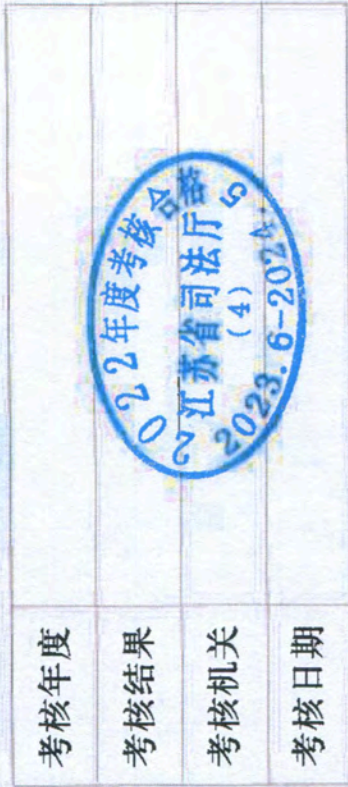 考核年度
考核结果
考核机关
考核日期
2022年度考核合格
江苏省司法厅
(4)
2023.6-2024.5